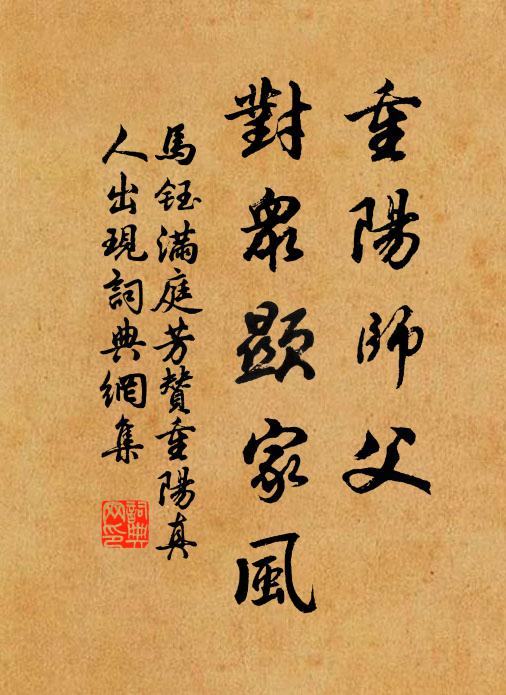 重陽師父
對眾顯家風
馬鈺滿庭芳贊重陽真
人出現詞典網集
詞典
网印